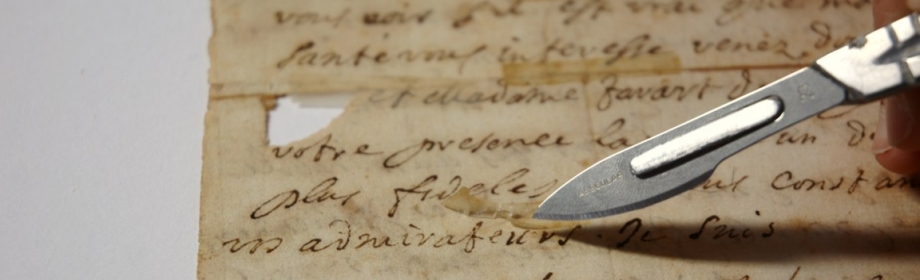 vous est vrai que
santé vous interesse venez
et Madame favart
votre presence la un
plus fideles constan
admirateurs. Je suis